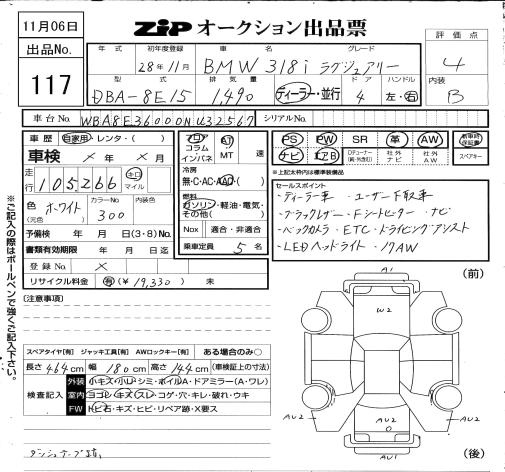 11月06日
ZIPオークション出品票
評価点
4
出品No.
117
年式
初年度登録
車名
グレード
28年11月
BMW 318i ラグジュアリー
型式
排気量
ドア
ハンドル
DBA-8E15
1,490
ディーラー・並行
4
左・右
内装
B
車台No.
WBA8E36000NU32567
シリアルNo.
車歴
自家用・レンタ・( )
車検
×年 ×月
走行
105266
キロ
マイル
色
(元色)
ホワイト
カラーNo.
300
内装色
予備検
年 月 日(3・8)No.
書類有効期限
年 月 日
登録No.
×
リサイクル料金
有(¥19,330) 未
フロア
コラム
インパネ
AT
MT
速
冷房
無・C・AC・AAC
燃料
ガソリン・軽油・電気・
その他( )
Nox
適合・非適合
乗車定員
5名
PS
PW
SR
革
AW
新車時
保証書
ナビ
エアB
社外
ナビ
社外
AW
スペアキー
※上記太枠内は標準装備品
セールスポイント
・ディーラー車 ・ユーザー下取車
・ブラックレザー・Fシートヒーター・ナビ
・バックカメラ・ETC・ドライビングアシスト
・LEDヘッドライト・17AW
(注意事項)
スペアタイヤ[有] ジャッキ工具[有] AWロックキー[有] ある場合のみ○
長さ464cm 幅180cm 高さ144cm (車検証上の寸法)
検査記入
外装
小キズ・小凹・シミ・ボイルA・ドアミラー(A・ワレ)
室内
ヨゴレ・キズ・スレ・コゲ・穴・キレ・破れ・ウキ
FW
トビ石・キズ・ヒビ・リペア跡・X要ス
(前)
A1
W2
AU2
AU2
AU2
A1
(後)
※ご記入の際はボールペンで強くご記入下さい。